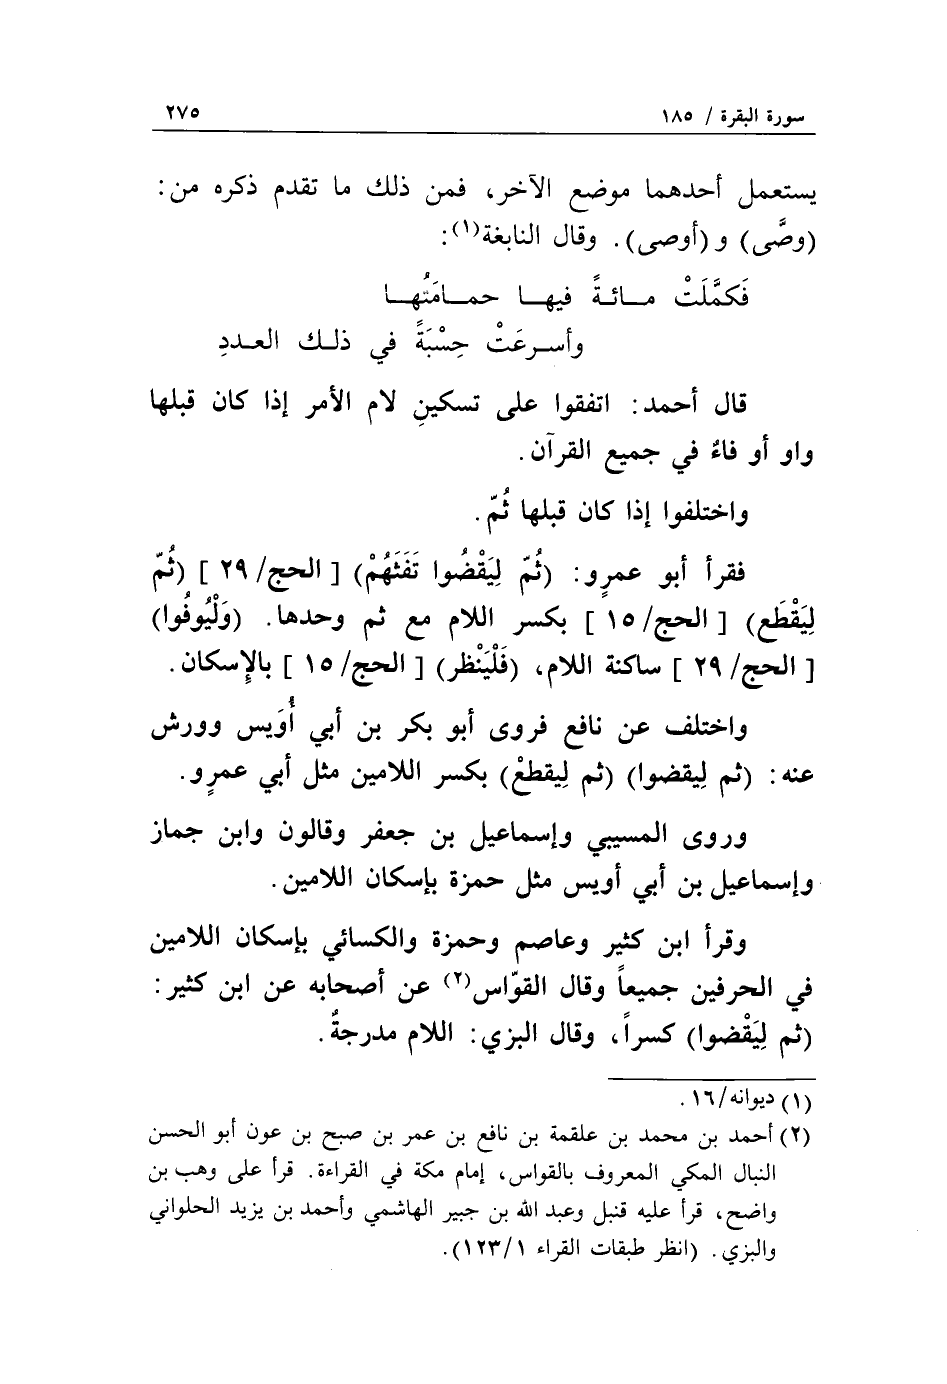 سورة البقرة / ١٨٥ ٢٧٥
يستعمل أحدهما موضع الآخر، فمن ذلك ما تقدم ذكره من:
(وصَّى) و (أوصى). وقال النابغة(١):
فَكمَّلَتْ مـــائـةً فيهـــا حمـــامَتُهـــا
وأســرعَتْ حِسْبَةً في ذلــك العــددِ
قال أحمد: اتفقوا على تسكينِ لام الأمر إذا كان قبلها
واو أو فاءٌ في جميع القرآن.
واختلفوا إذا كان قبلها ثُمّ.
فقرأ أبو عمرٍو: (ثُمّ لِيَقْضُوا تَفَثَهُمْ) [ الحج/ ٢٩ ] (ثُمّ
لِيَقْطَع) [ الحج/ ١٥ ] بكسر اللام مع ثم وحدها. (وَلْيُوفُوا)
[ الحج/ ٢٩ ] ساكنة اللام، (فَلْيَنْظر) [ الحج/ ١٥ ] بالإسكان.
واختلف عن نافع فروى أبو بكر بن أبي أُوَيس وورش
عنه: (ثم لِيقضوا) (ثم لِيقطعْ) بكسر اللامين مثل أبي عمرٍو.
وروى المسيبي وإسماعيل بن جعفر وقالون وابن جماز
وإسماعيل بن أبي أويس مثل حمزة بإسكان اللامين.
وقرأ ابن كثير وعاصم وحمزة والكسائي بإسكان اللامين
في الحرفين جميعاً وقال القوّاس(٢) عن أصحابه عن ابن كثير:
(ثم لِيَقْضوا) كسراً، وقال البزي: اللام مدرجةٌ.
(١) ديوانه/ ١٦.
(٢) أحمد بن محمد بن علقمة بن نافع بن عمر بن صبح بن عون أبو الحسن
النبال المكي المعروف بالقواس، إمام مكة في القراءة. قرأ على وهب بن
واضح، قرأ عليه قنبل وعبد الله بن جبير الهاشمي وأحمد بن يزيد الحلواني
والبزي. (انظر طبقات القراء ١/ ١٢٣).